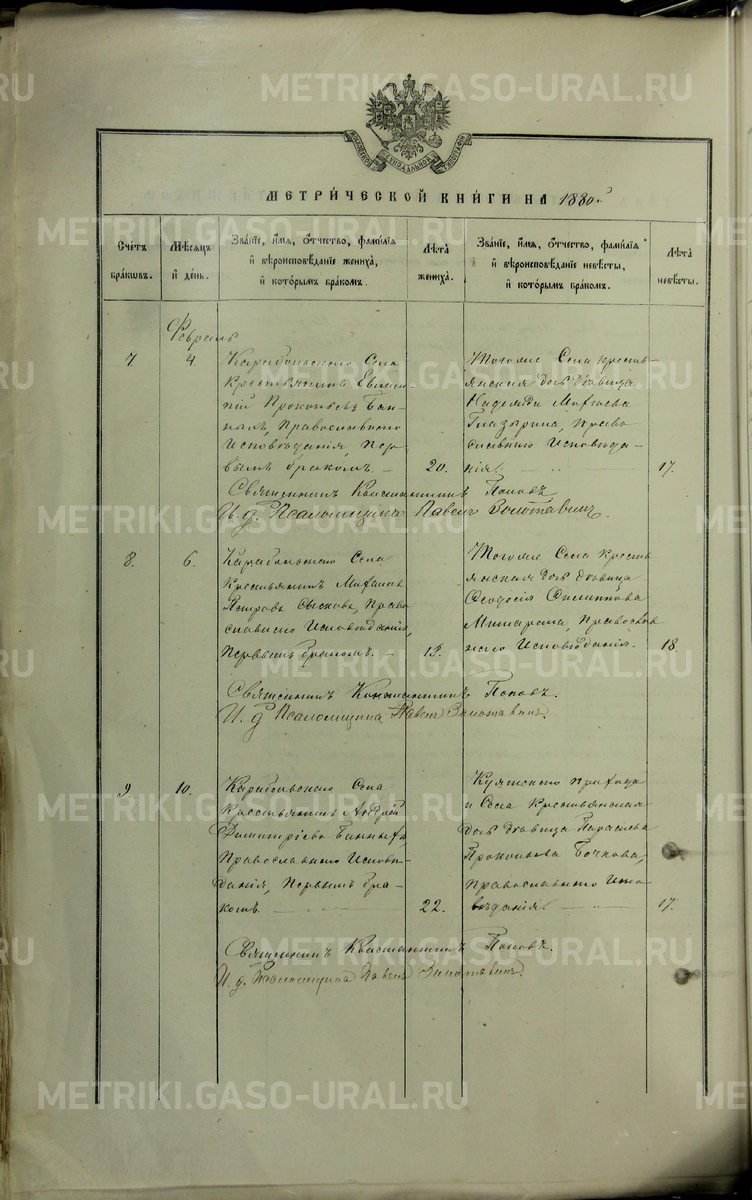 METRIKI.GASO-URAL.RU
МОСКОВСКОЙ СѴНОДАЛЬНОЙ ТИПОГРАФІИ
МЕТРИ́ЧЕСКОЙ КНИ́ГИ НА 1880 г.
Сче́тъ бра́ковъ.
Мѣ́сяцъ и҆ де́нь.
Зва́нїе, и҆́мѧ, ѻ҆́тчество, фами́лїѧ и҆ вѣроисповѣ́данїе жениха̀, и҆ кото́рымъ бра́комъ.
Лѣ́та жениха̀.
Зва́нїе, и҆́мѧ, ѻ҆́тчество, фами́лїѧ и҆ вѣроисповѣ́данїе невѣ́сты, и҆ кото́рымъ бра́комъ.
Лѣ́та невѣ́сты.
Февраль
7. 4
Карабольскаго Села
Крестьянинъ
Прокопьевъ Бан-
ныхъ, Православнаго
Исповѣданія, Пер-
вымъ бракомъ. — 20.
Тогоже Села кресть-
янская дочь дѣвица
Надежда
Глазырина, Право
славнаго Исповѣда-
нія. 17.
Священникъ Константинъ Поповъ
И. д. Псаломщика Павелъ Золотавинъ.
8. 6.
Карабольскаго Села
Крестьянинъ Михаилъ
Петровъ Сысковъ, Право
славнаго Исповѣданія,
Первымъ бракомъ. — 19.
Тогоже Села Кресть
янская дочь дѣвица
Феодосія Филиппова
Православ
наго Исповѣданія. 18
Священникъ Константинъ Поповъ.
И. д. Псаломщика Павелъ Золотавинъ.
9 10.
Карабольскаго Села
Крестьянинъ Андрей
Димитріевъ Банныхъ,
Православнаго Исповѣ-
данія, Первымъ бра-
комъ. 22.
Куяшскаго прихода
и Села Крестьянская
дочь дѣвица Параскева
Прокопьева Бочкова,
православнаго Испо
вѣданія. 17.
Священникъ Константинъ Поповъ.
И. д. Псаломщика Павелъ Золотавинъ.